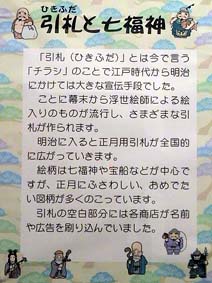 ひきふだ
引札と七福神
「引札（ひきふだ）」とは今で言う
「チラシ」のことで江戸時代から明治
にかけては大きな宣伝手段でした。
ことに幕末から浮世絵師による絵
入りのものが流行し、さまざまな引
札が作られます。
明治に入ると正月用引札が全国的
に広がっていきます。
絵柄は七福神や宝船などが中心で
すが、正月にふさわしい、おめでた
い図柄が多くのこっています。
引札の空白部分には各商店が名前
や広告を刷り込んでいました。